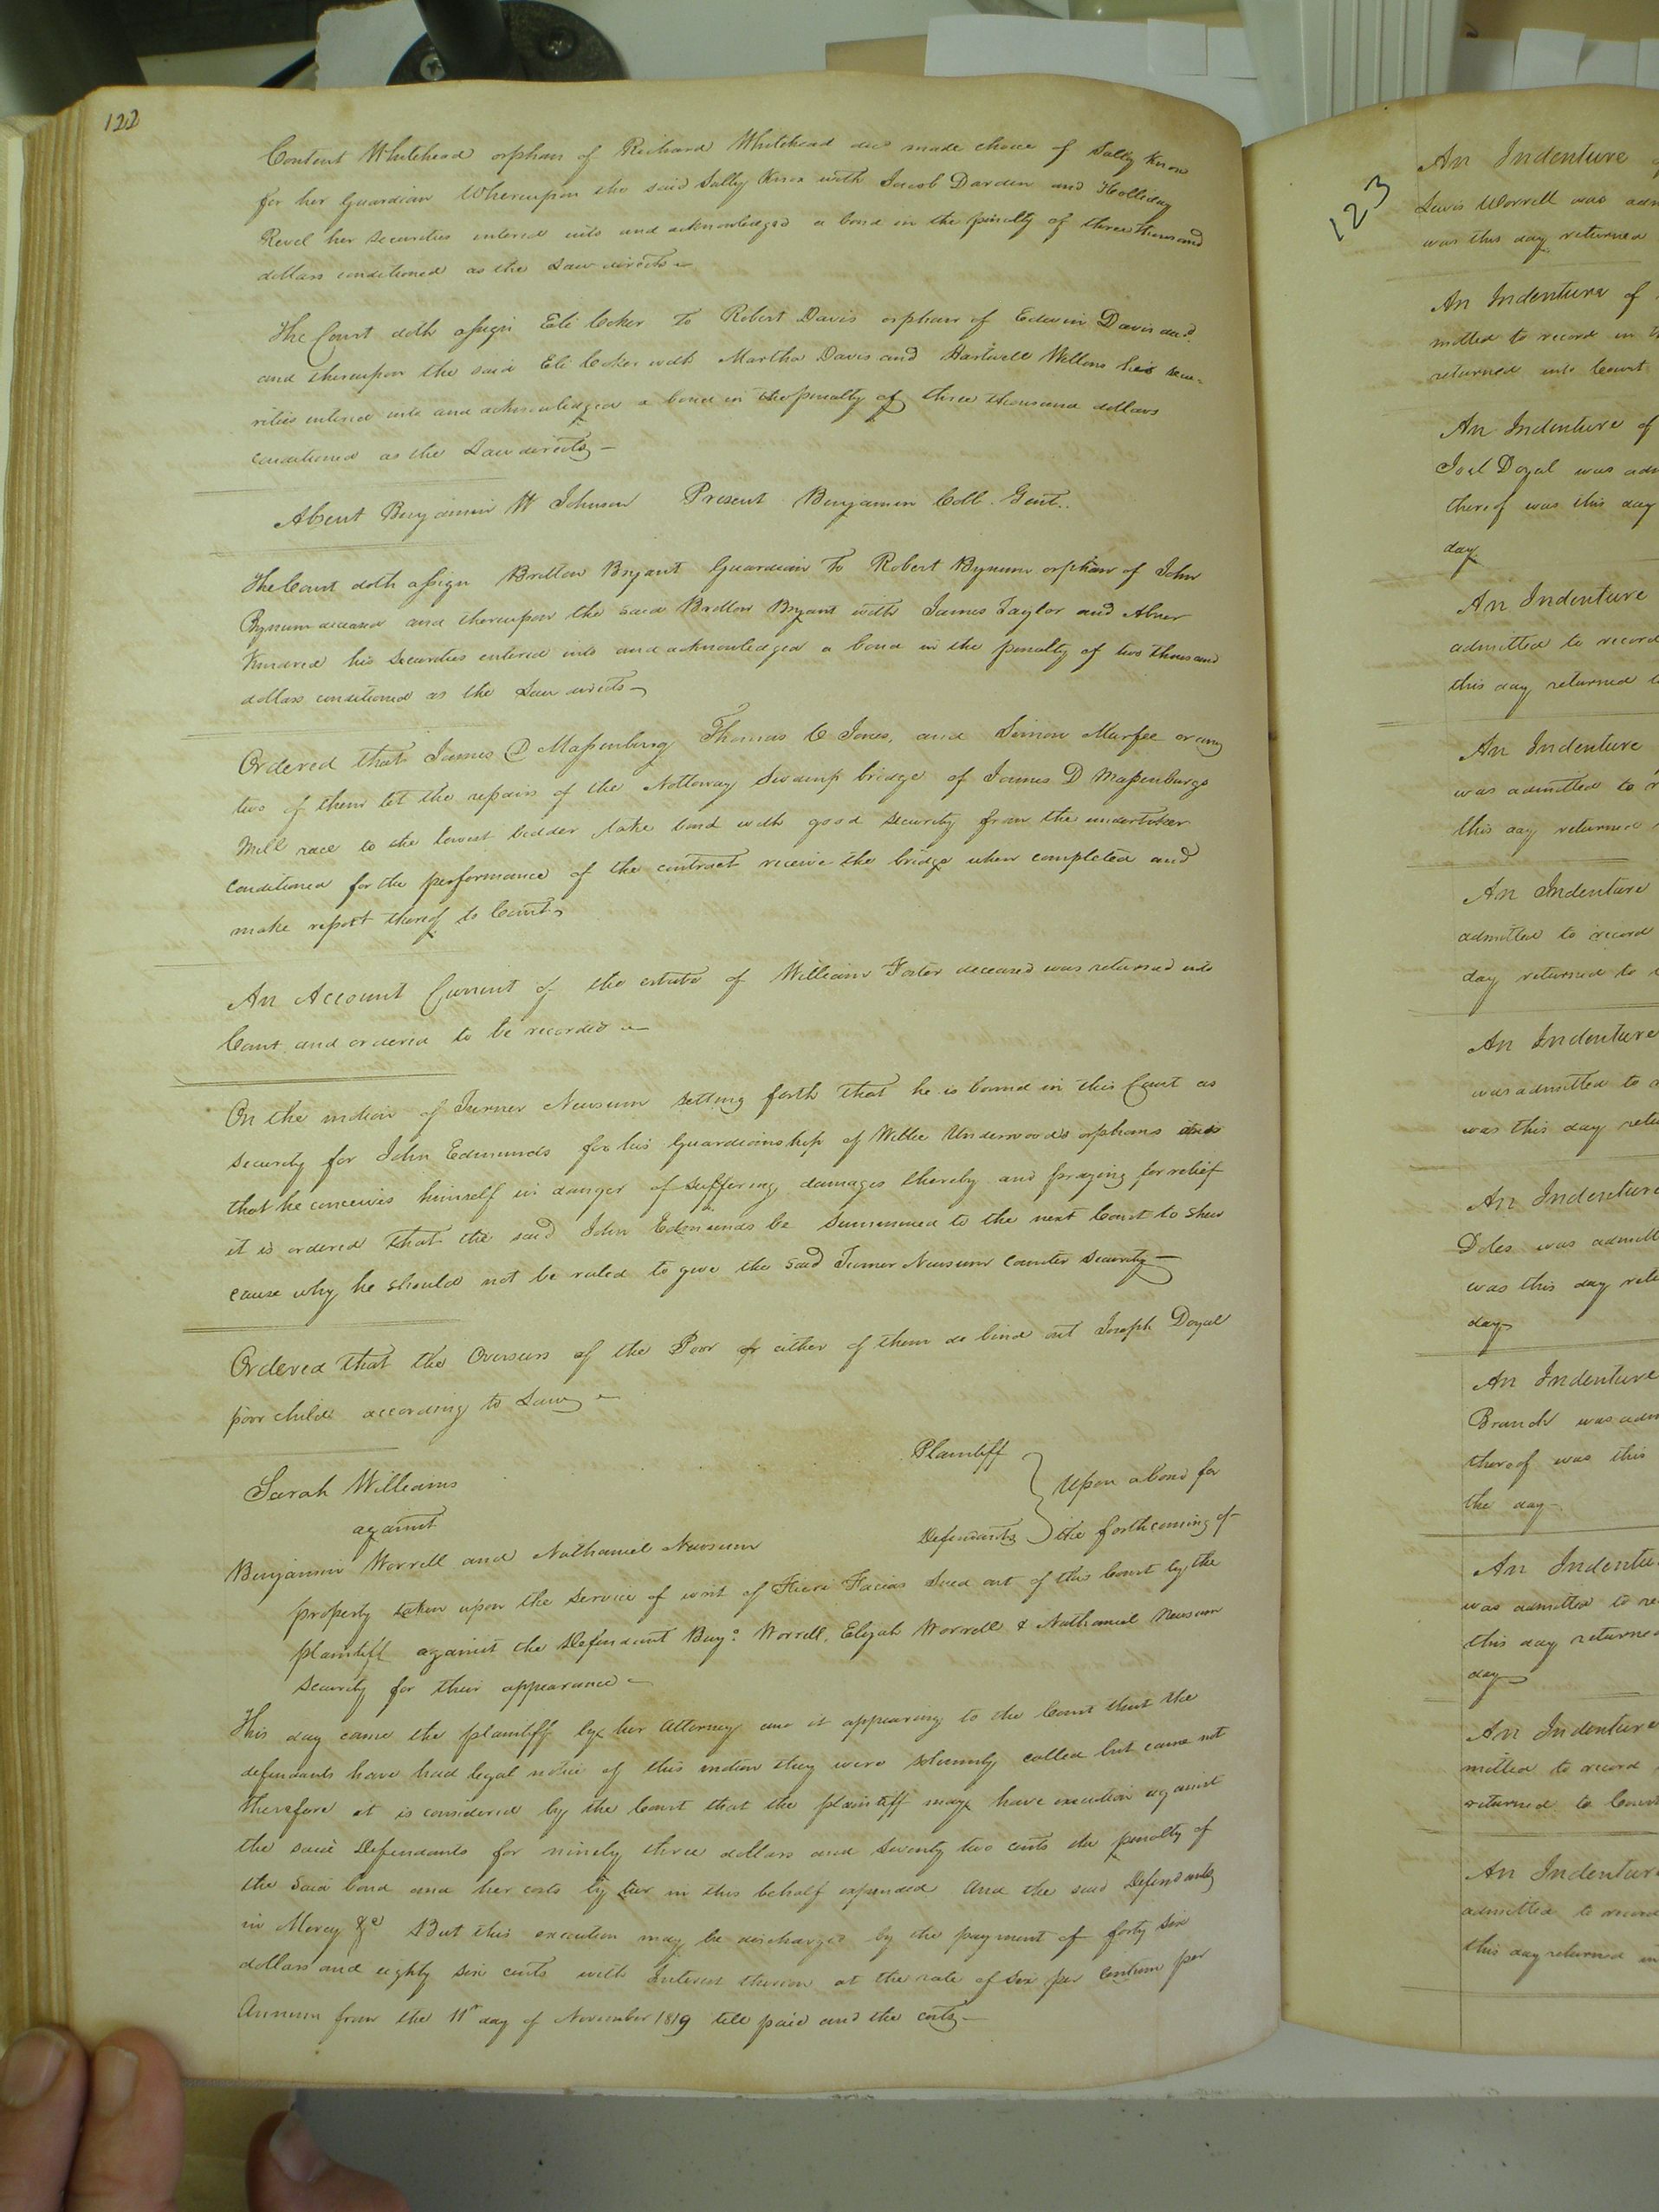 122
Content Whitehead orphan of Richard Whitehead decd made choice of Sally Knox
for her Guardian Whereupon the said Sally Knox with Jacob Darden and Holliday
Revel her securities entered into and acknowledged a bond in the penalty of three thousand
dollars conditioned as the Law directs
The Court doth assign Eli Coker To Robert Davis orphan of Edwin Davis decd.
and thereupon the said Eli Coker with Martha Davis and Hartwell Vellons his secu-
rities entered into and acknowledged a bond in the penalty of three thousand dollars
conditioned as the Law directs
Absent Benjamin W Johnson Present Benjamin Cobb Gent.
The Court doth assign Britton Bryant Guardian To Robert Bynum orphan of John
Bynum deceased and thereupon the said Britton Bryant with James Taylor and Abner
Kindred his Securities entered into and acknowledged a bond in the penalty of two thousand
dollars conditioned as the Law directs
Ordered that James D Massenburg Thomas C Jones, and Simon Murfee or any
two of them let the repairs of the Nottoway Swamp bridge of James D Massenburgs
Mill race to the lowest bidder take bond with good security from the undertaker
conditioned for the performance of the contract receive the bridge when completed and
make report thereof to Court
An Account Current of the estate of William Foster deceased was returned into
Court and ordered to be recorded
On the motion of Turner Newsum setting forth that he is bound in this Court as
security for John Edmunds for his Guardianship of Willie Underwoods orphans and
that he conceives himself in danger of suffering damages thereby and praying for relief
it is ordered that the said John Edmunds be summoned to the next Court to shew
cause why he should not be ruled to give the said Turner Newsum counter security
Ordered that the Overseers of the Poor or either of them do bind out Joseph Doyal
poor child according to Law
Sarah Williams Plaintiff
against Upon a bond for
Benjamin Worrell and Nathaniel Newsum Defendants the forthcoming of
property taken upon the service of writ of Fieri Facias Sued out of this Court by the
plaintiff against the Defendant Benj. Worrell, Elijah Worrell & Nathaniel Newsum
security for their appearance
This day came the plaintiff by her Attorney and it appearing to the Court that the
defendants have had legal notice of this motion they were solemnly called but came not
Therefore it is considered by the Court that the plaintiff may have execution against
the said Defendants for ninety three dollars and seventy two cents the penalty of
the said bond and her costs by her in this behalf expended And the said Defendants
in Mercy &c But this execution may be discharged by the payment of forty six
dollars and eighty six cents with Interest thereon at the rate of six per Centum per
Annum from the 11th day of November 1819 till paid and the costs
123
An Indenture
Lewis Worrell was
was this day returned
An Indenture of
mitted to record in
returned into Court
An Indenture of
Joel Doyal was
thereof was this day
day
An Indenture
admitted to record
this day returned
An Indenture
was admitted to
this day returned
An Indenture
admitted to record
day returned to
An Indenture
was admitted to
was this day
An Indenture
Doles was
was this day
day
An Indenture
was
thereof was this
the day
An Indenture
was admitted to
this day returned
day
An Indenture
mitted to record
returned to Court
An Indenture
admitted to record
this day returned